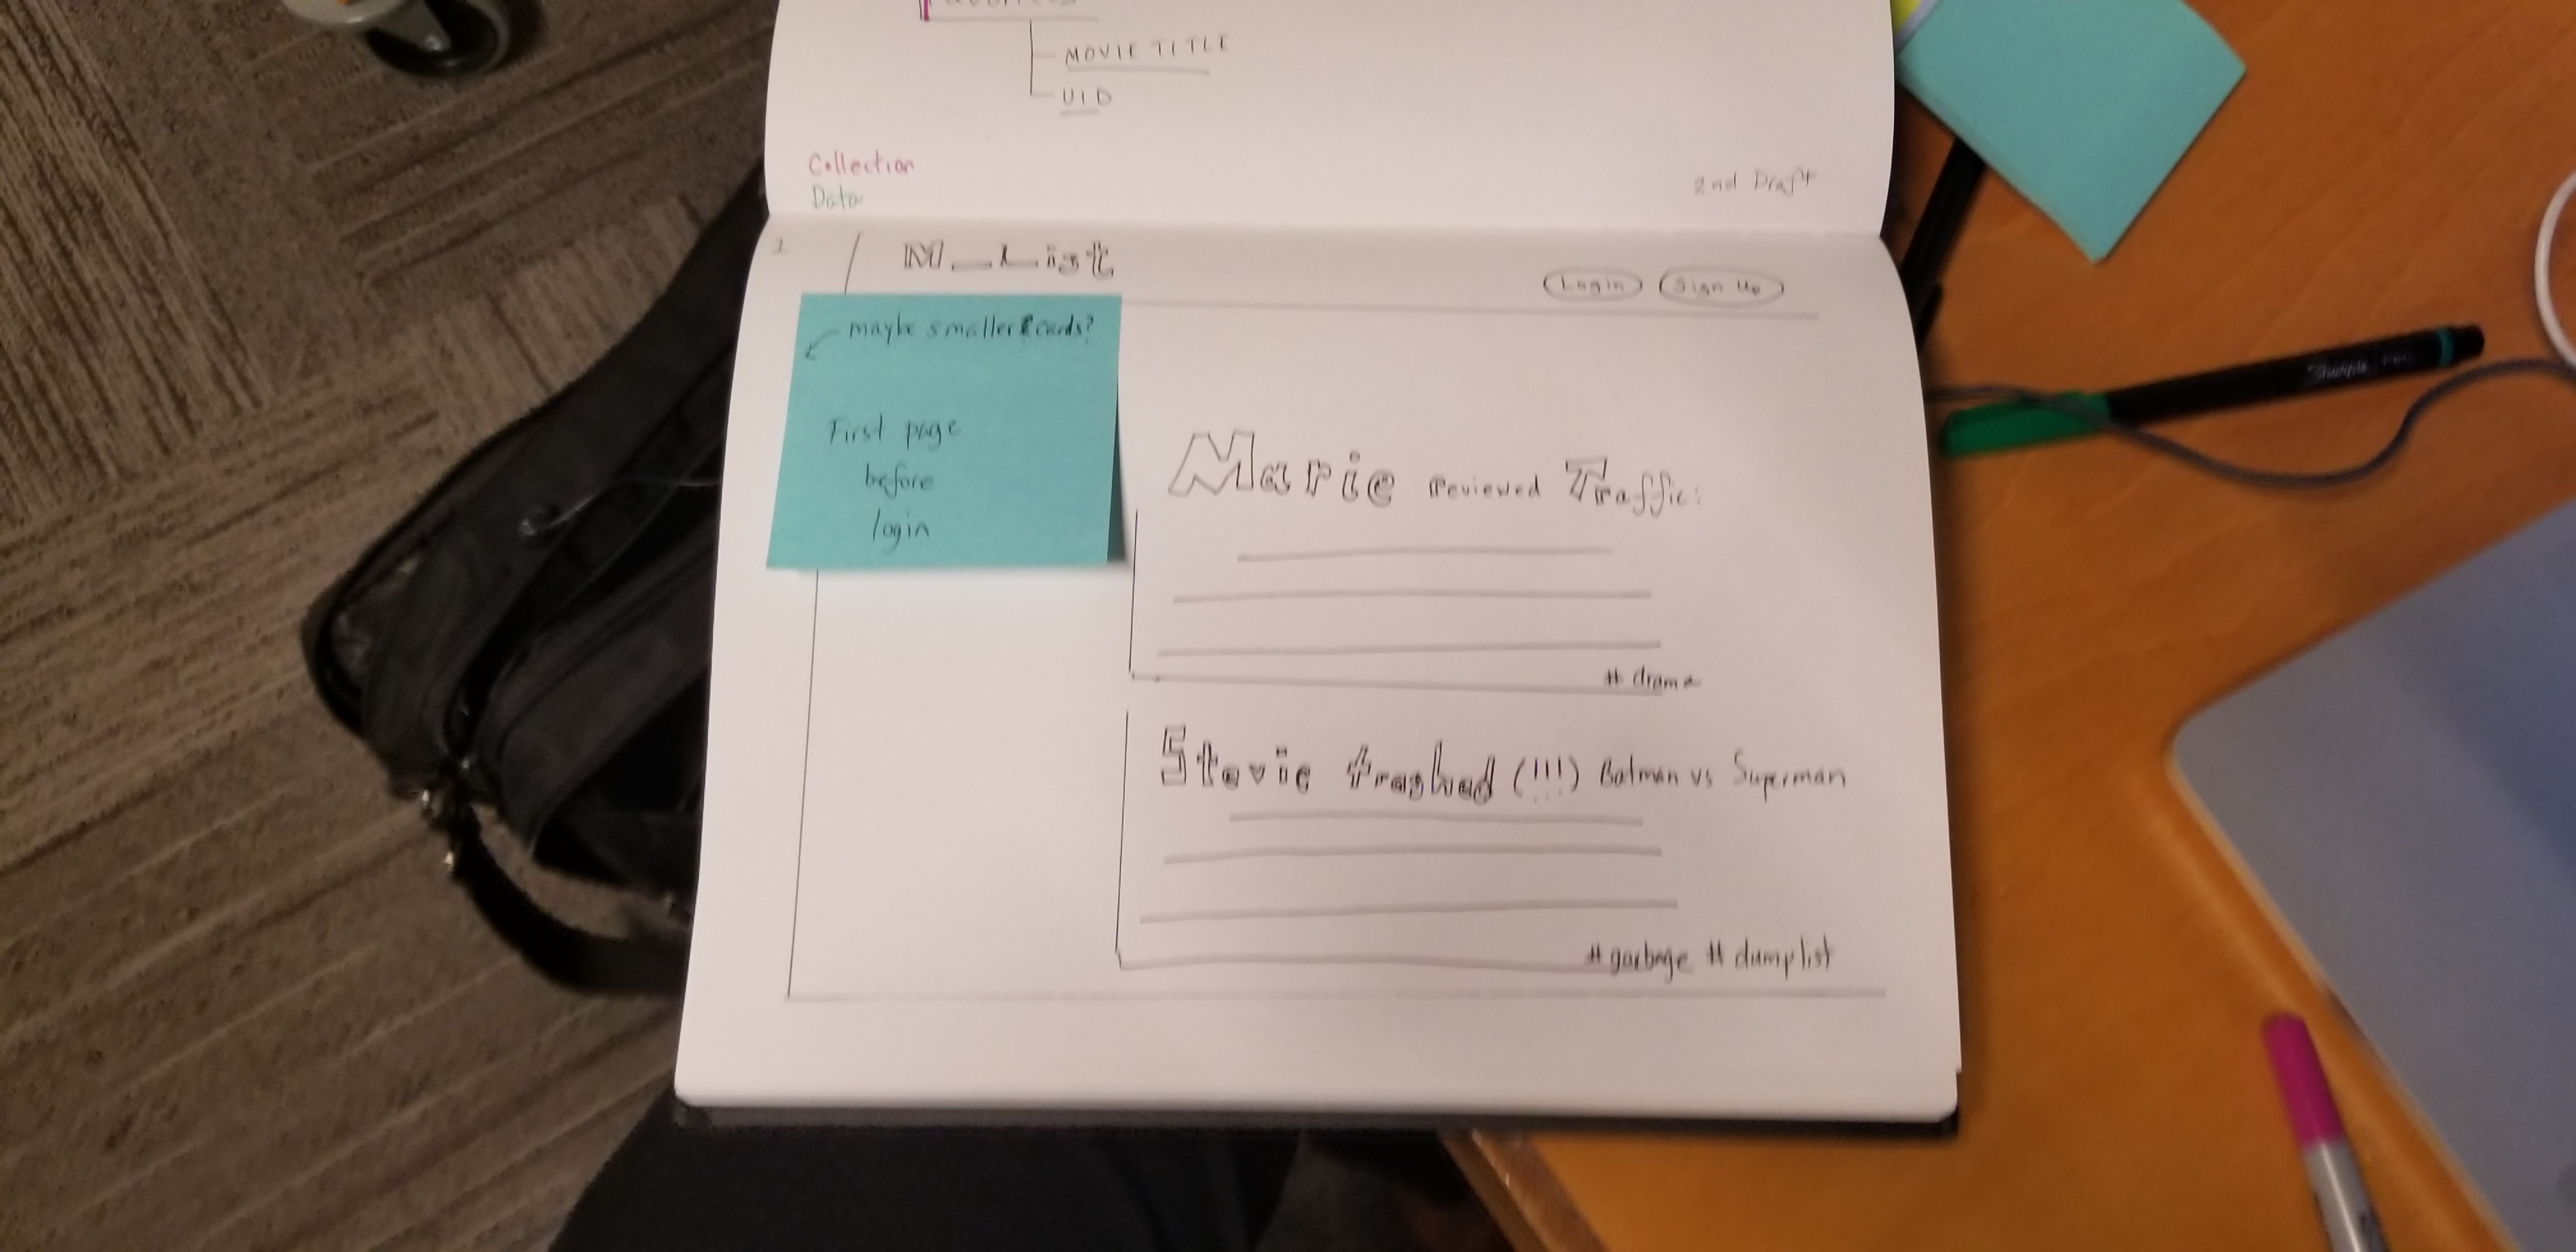 MOVIE TITLE
UID
Collection
Data
2nd Draft
1
M_List
Login
Sign Up
maybe smaller cards?
First page
before
login
Marie reviewed Traffic:
# drama
Stevie trashed (!!!) Batman vs Superman
# garbage # dumplist
Sharpie Pen